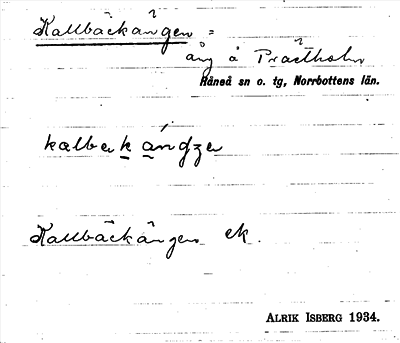 Kallbäckängen =
äng å Prästholm
Råneå sn o. tg, Norrbottens län.
kalbekändzen
Kallbäckängen ek.
ALRIK ISBERG 1934.